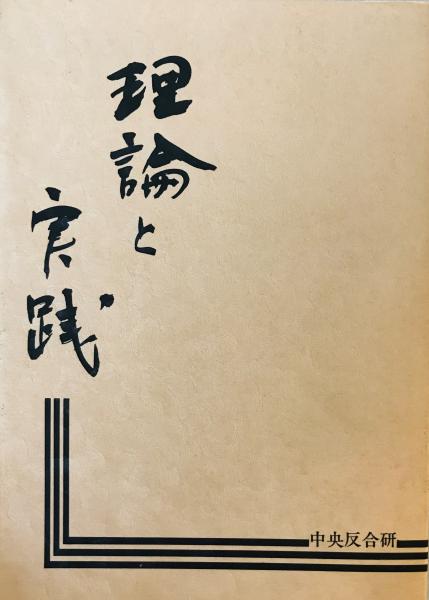 理論と
実践
中央反合研